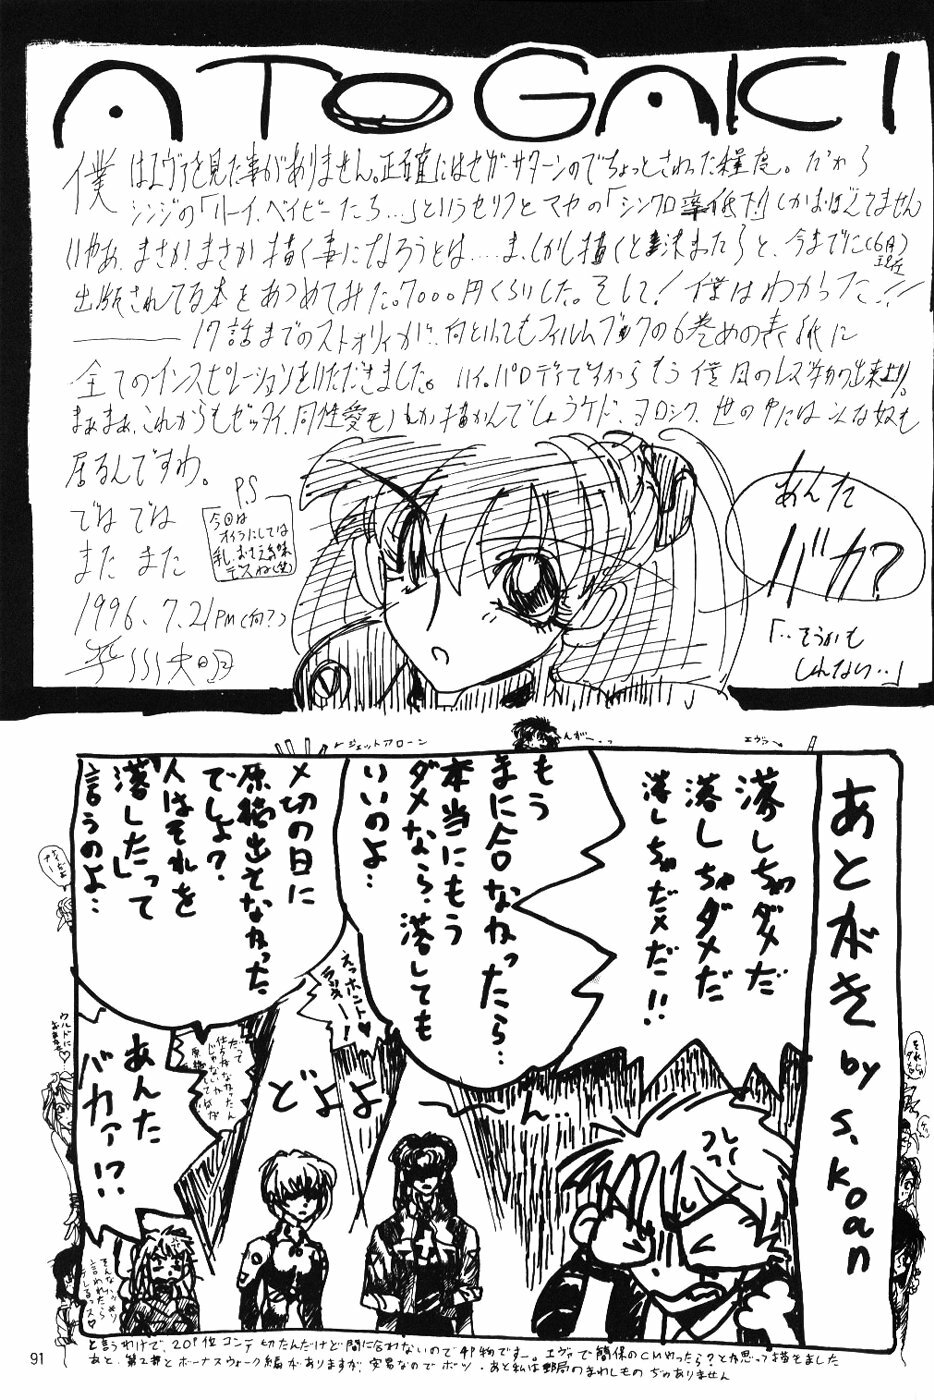 ATOGAKI
僕はエヴァを見た事がありません。正確にはセガ・サターンのでちょっとさわった程度。だから
シンジの「ハーイ、ベイビーたち…」というセリフとマヤの「シンクロ率低下!」しかおぼえてません
いやあ、まさか、まさか描く事になろうとは……ま、しかし描くと決まったらと、今までに(6月現在)
出版されてる本をあつめてみた。7000円くらいした。そして!僕はわかった!!
———17話までのストォリィがに、何といってもフィルムブックの6巻めの表紙に
全てのインスピレーションをいただきました。ハイ。パロディですからもう僕風のレズ物の出来上り。
まぁまぁ、これからもゼッタイ、同性愛モノしか描かんでしょうケド、ヨロシク、世の中にはこんな奴も
居るんですわ。
ではでは
また また
1996.7.21PM(何?)
P.S
今回は
オイラにしては
乳おさえ気味
デスね(笑)
あんた
バカ?
「‥そうかも
しれない‥」
ジェットアローン
エヴァ
あとがき by S.Koan
落しちゃダメだ
落しちゃダメだ
落しちゃだメだ!!
もう
まに合わなかったら…
本当にもう
ダメなら、落しても
いいのよ…
〆切の日に
原稿出せなかった
でしょ?
人はそれを
「落した」って
言うのよ…
えっホント♥
ラッキー!
どよよーん‥
あんた
バカァ!?
と言うわけで、20P位コンテ切たんだけど間に合わないので4P物ですー。エヴァで簡保のCMやったら?とか思って描きました
あと、第2部とボーナスウォーク編がありますが、安易なのでボツ。あと私は郵局のまわしものぢゃありません
91